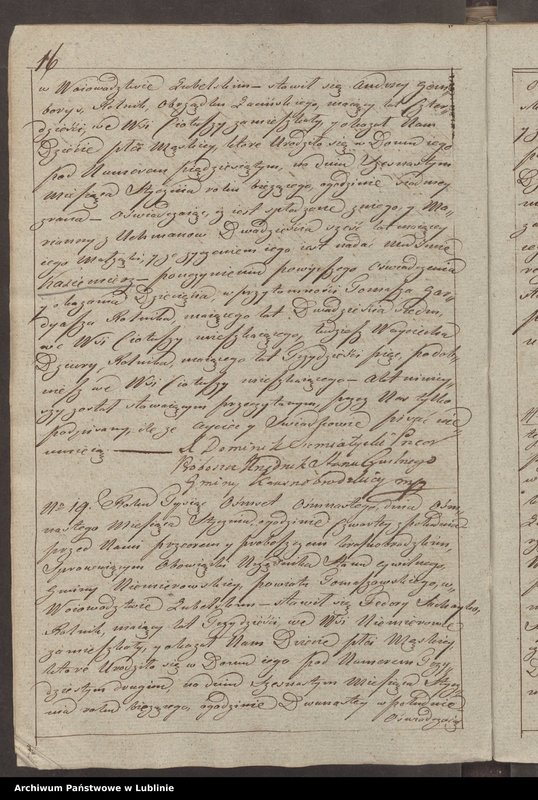 16
w Woiewodztwie Lubelskim – stawił się Andrzey
Rolnik, Obrządku Łacińskiego, maiący lat czter-
dzieści, we Wsi Ciotuszy zamieszkały, y okazał Nam
Dziecie płci Męskiey, które Urodziło się w Domu iego
pod Numerem piędziesiątym, na dniu szesnastym
Miesiąca Stycznia roku bieżącego, o godzinie
zrana – Oświadczaiąc, iż iest spłodzone z niego, y Ma-
rianny z Uchmanow Dwadzieścia sześć lat maiącey
iego Małżonki, y życzeniem iego iest nadać mu Imie
Kazimierz – po uczynieniu powyższego Oświadczenia
y okazaniu Dziecięcia, w przytomności Tomasza Gar-
dyasza Rolnika, maiącego lat Dwadzieścia siedm,
we Wsi Ciotuszy mieszkaiącego, tudzież Woyciecha
Dziury, Rolnika, maiącego lat Trzydzieści pięć, podob-
nież we Wsi Ciotuszy mieszkaiącego – Akt niniey-
szy został stawaiącym przeczytanym, przez Nas tylko
podpisany, ile że Oyciec y Świadkowie pisać nie
umieią.
X Dominik
Proboszcz Urzędnik Stanu Cywilnego
Gminy Krasnobrodzkiey mp
No 19. Roku Tysiąc Ośmset Ośmnastego, dnia Ośm-
nastego Miesiąca Stycznia, o godzinie czwartey z południa
przed Nami przeorem y proboszczem Krasnobrodzkim,
Sprawuiącym Obowiązki Urzędnika Stanu Cywilnego,
Gminy Niemirowskiey, powiatu Tomaszowskiego, w
Woiewodztwie Lubelskim – stawił się Fedory
Rolnik, maiący lat Trzydzieści, we Wsi Niemirowie
zamieszkały, y okazał Nam Dziecie płci Męskiey,
które Urodziło się w Domu iego pod Numerem Trzy-
dziestym drugim na dniu szesnastym Miesiąca Stycz-
nia roku bieżącego, o godzinie Dwunastey w południe
Oświadczaiąc
Archiwum Państwowe w Lublinie